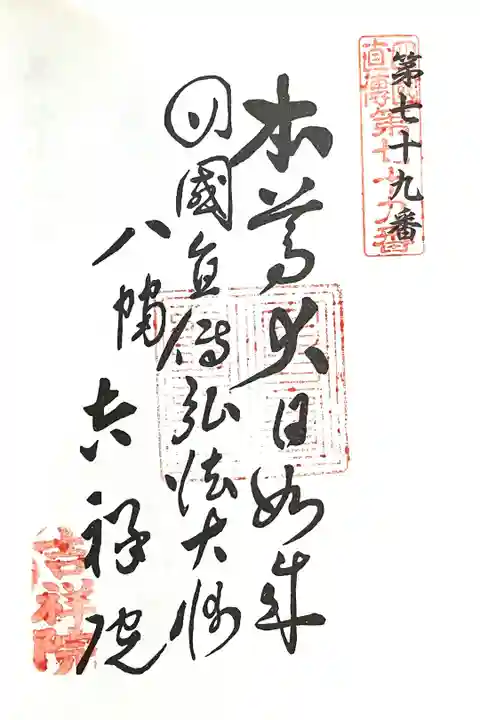 第七十九番
直傳第七十九番
本尊大日如来
四國直傳弘法大師
八幡 吉祥院
吉祥院